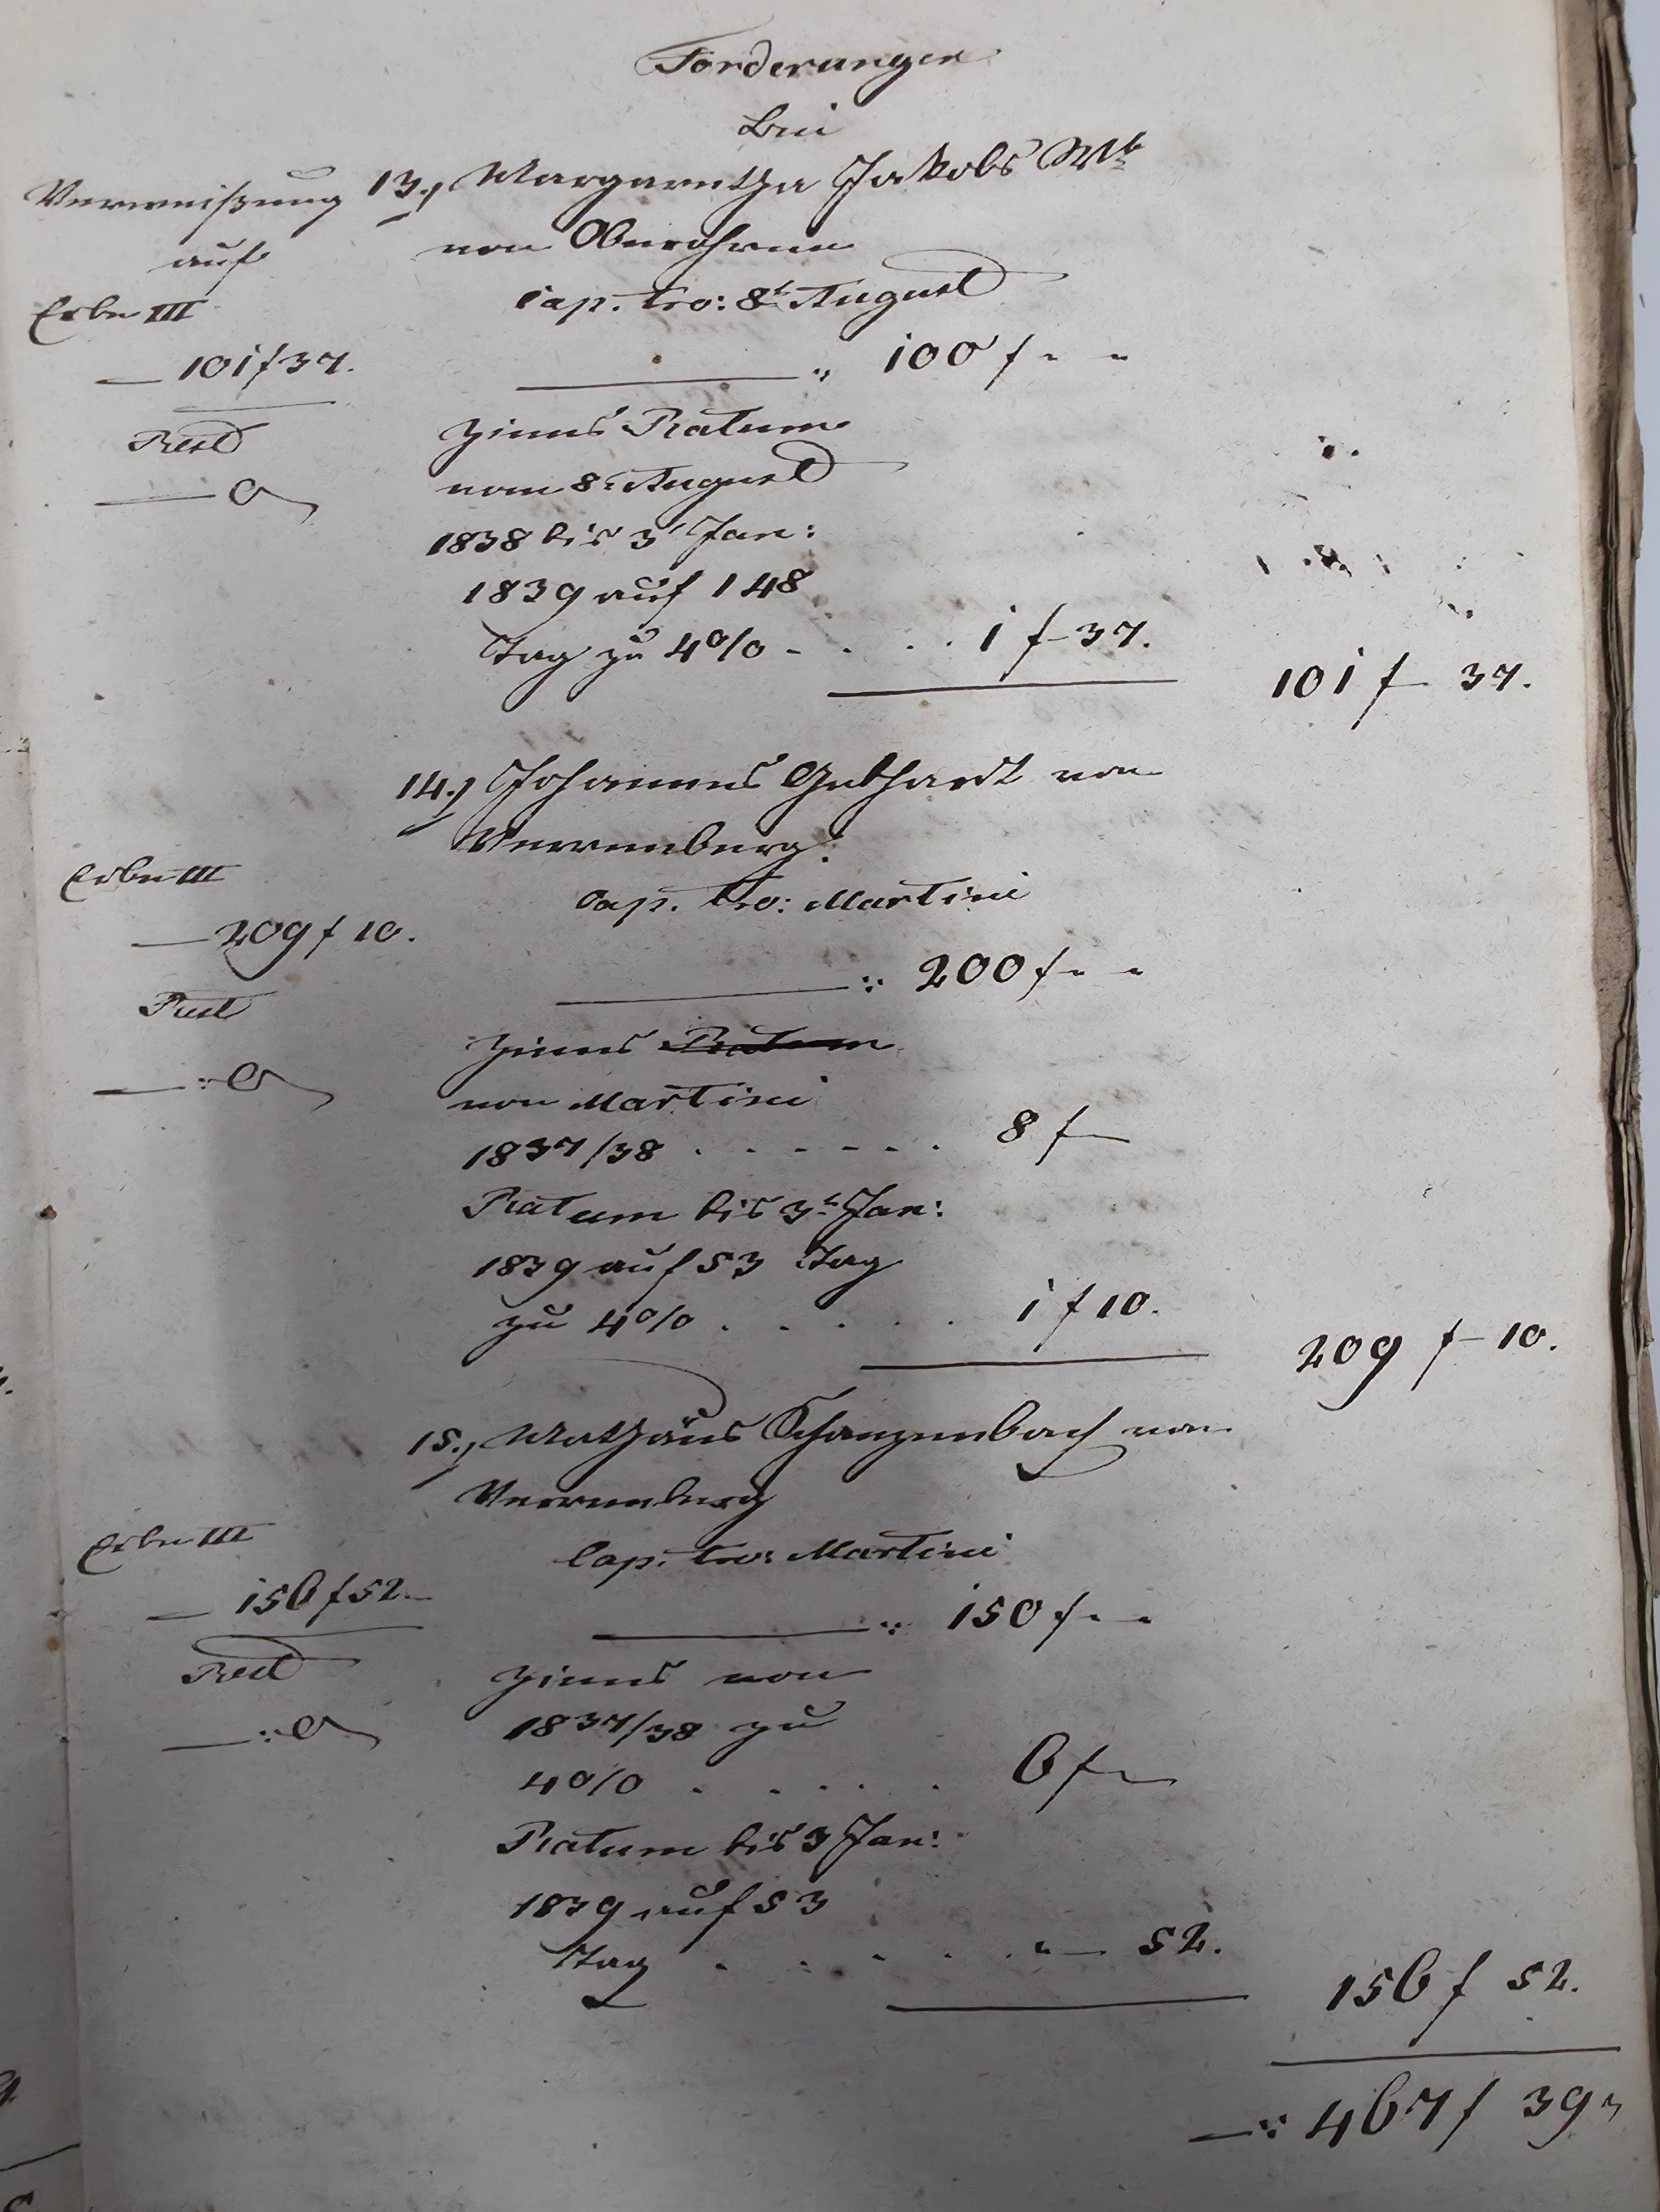 Forderungen
bei
Verweißung
auf
Erbe III
— 101 f 37.
Rest
— 0
13.) Margaretha Jakobs Wb
von Oberohren
Cap. tro: 8t August
" 100 f " "
Zinns Ratum
vom 8t August
1838 bis 3t Jan:
1839 auf 148
Tag zu 4 0/0 - . . . 1 f 37.
101 f 37.
14.) Johannes Gebhardt von
Verrenberg.
Erbe III
— 209 f 10.
Rest
— : 0
Cap. tro: Martini
: 200 f " "
Zinns Ratum
von Martini
1837/38 . . . . . . 8 f —
Ratum bis 3t Jan:
1839 auf 53 Tag
zu 4 0/0 . . . . . 1 f 10.
209 f 10.
15.) Mathäus Schanzenbach von
Verrenberg
Erbe III
— 156 f 52.
Rest
— : 0
Cap. tro: Martini
: 150 f " "
Zinns von
1837/38 zu
4 0/0 . . . . . 6 f —
Ratum bis 3 Jan:
1839 auf 53
Tag . . . . . " — 52.
156 f 52.
— : 467 f 39